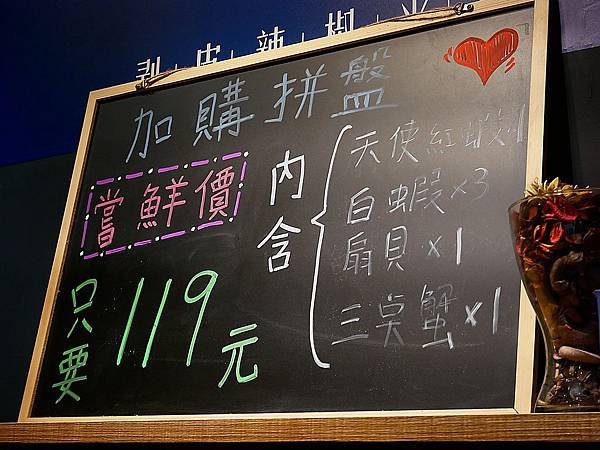 剥皮辣椒
加購拼盤
嘗鮮價
只要119元
內含
天使紅蝦x1
白蝦x3
扇貝x1
三桌蟹x1